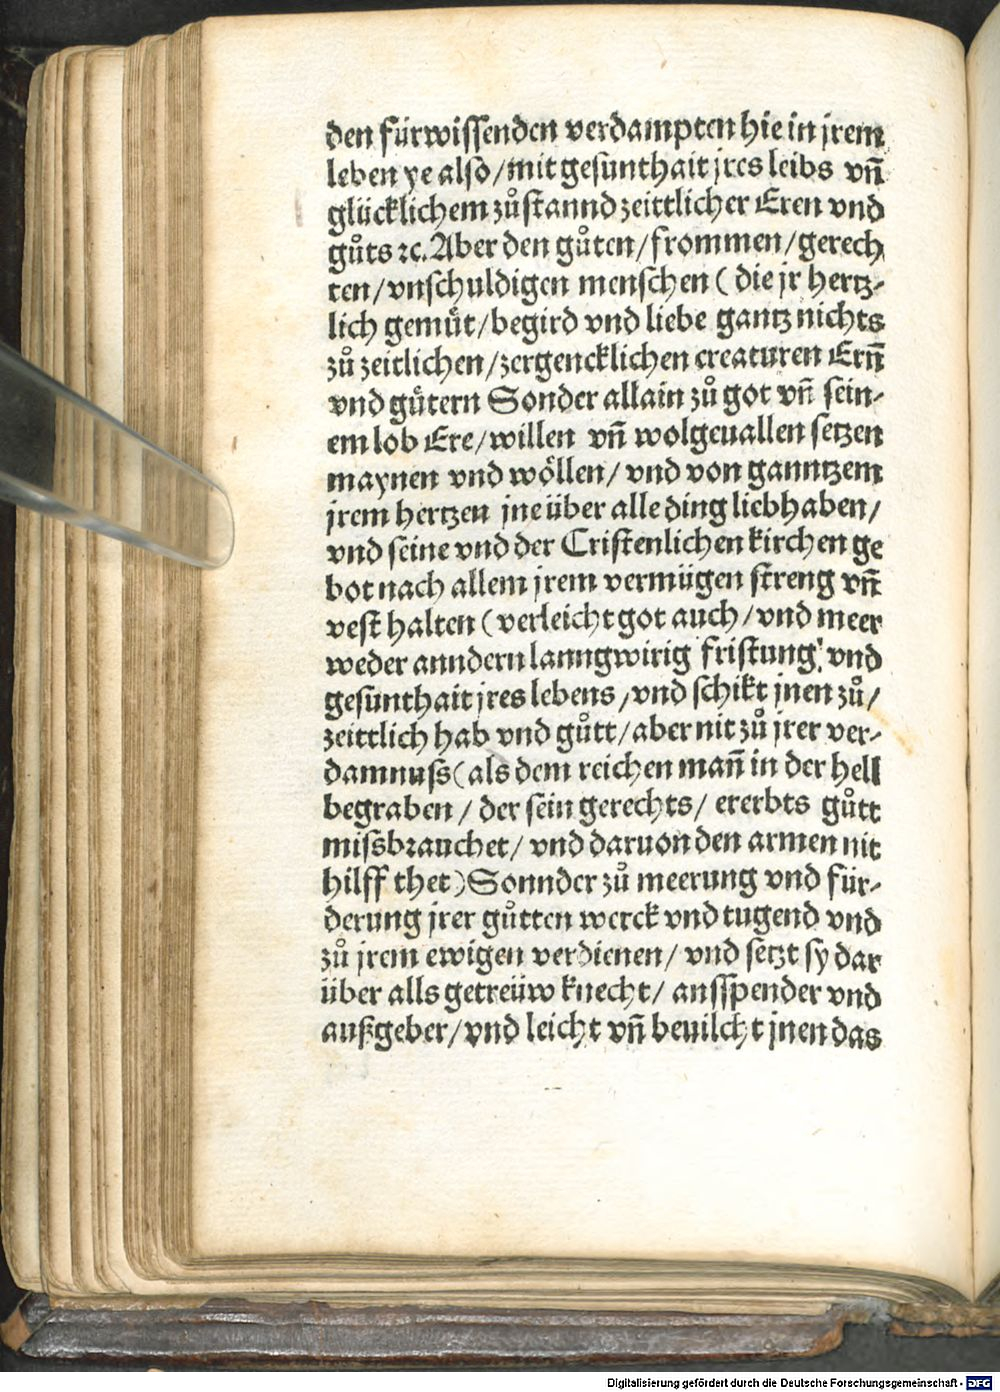 den fürwissenden verdampten hie in jrem
leben ye also/mit gesunthait jres leibs vñ
glücklichem zůstannd zeittlicher Eren vnd
gůts ⁊c. Aber den gůten/frommen/gerech
ten/vnschuldigen menschen ( die jr hertz⸗
lich gemüt/begird vnd liebe gantz nichts
zů zeitlichen/zergencklichen creaturen Ern̄
vnd gütern Sonder allain zů got vñ sein⸗
em lob Ere/willen vñ wolgeuallen setzen
maynen vnd wöllen/ vnd von ganntzem
jrem hertzen jne über alle ding liebhaben/
vnd seine vnd der Cristenlichen kirchen ge
bot nach allem jrem vermügen streng vñ
vest halten ( verleicht got auch/vnd meer
weder anndern lanngwirig fristung vnd
gesunthait jres lebens/vnd schikt jnen zů/
zeittlich hab vnd gůtt/aber nit zů jrer ver⸗
damnuss( als dem reichen mañ in der hell
begraben / der sein gerechts/ ererbts gůtt
missbrauchet/ vnd daruon den armen nit
hilff thet)Sonnder zů meerung vnd für⸗
derung jrer gůtten werck vnd tugend vnd
zů jrem ewigen verdienen/ vnd setzt sy dar
über alls getreüw knecht/ ansspender vnd
außgeber/vnd leicht vñ beuilcht jnen das
Digitalisierung gefördert durch die Deutsche Forschungsgemeinschaft - DFG